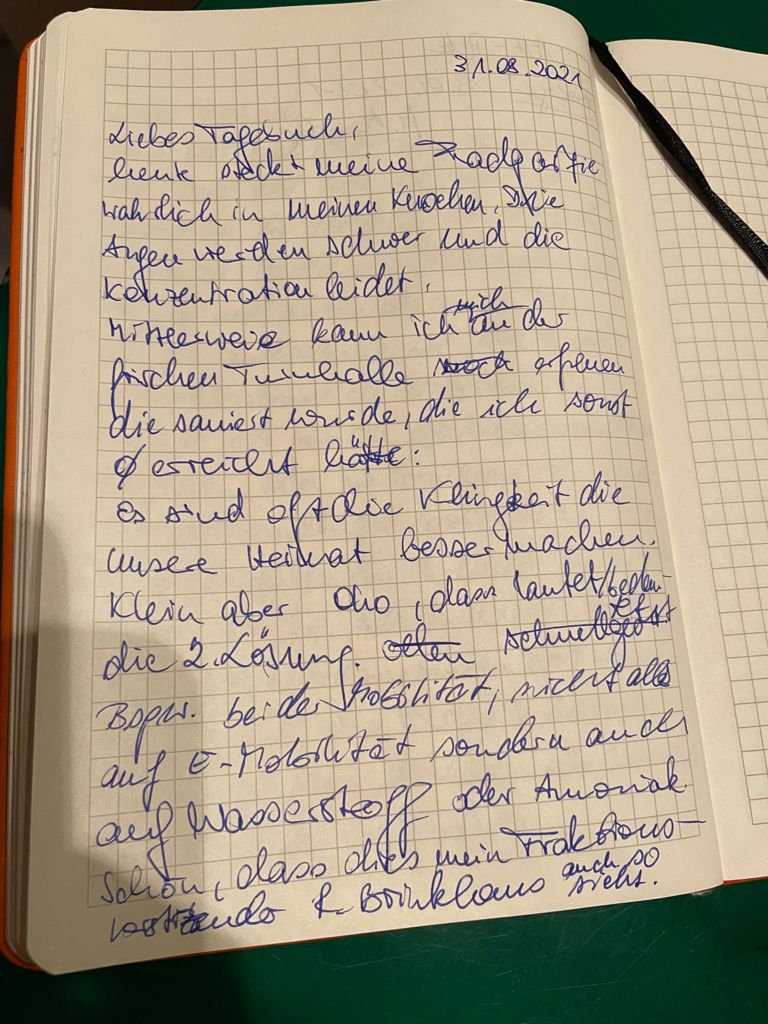 31.08.2021
Liebes Tagebuch,
heute steckt meine Radpartie
wahrlich in meinen Knochen. Die
Augen werden schwer und die
Konzentration leidet.
Mittlerweile kann ich mich an der
frischen Turnhalle noch erfreuen
die saniert wurde, die ich sonst
Ø erreicht hätte:
Es sind oft die Kleinigkeit die
unsere Heimat besser machen.
Klein aber Oho, dass lautet/bedeu-
tet
die 2. Lösung.
Bspw. bei der Mobilität, nicht alles
auf E-Mobilität sondern auch
auf Wasserstoff oder Amoniak
Schön, dass dies mein Fraktions-
vorsitzender R. Brinkhaus auch so
sieht.